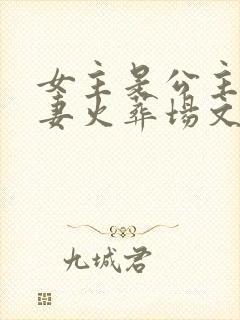 女主是公主
妻火葬场文
九城君